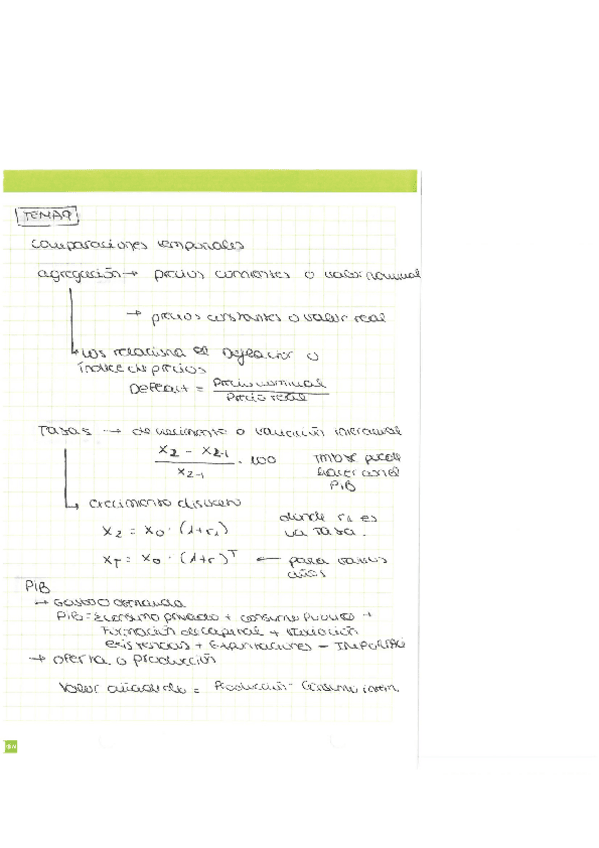 TEMA9
comparaciones temporales
agregación → precios corrientes o valor nominal
→ precios constantes o valor real
los relaciona el Deflactor o
índice de precios
Deflact = Precio nominal / Precio real
Tasas → de crecimiento o variación interanual
X2 - X2-1 / X2-1 · 100
TMB se puede
hacer con el
PIB
crecimiento discreto
X2 = X0 · (1+r1)
donde r1 es
una tasa.
XT = X0 · (1+r)^T ← para varios
años
PIB
→ Gasto o demanda
PIB = Σconsumo privado + consumo Público +
Formación de capital + variación
existencias + Exportaciones -
→ oferta o producción
Valor añadido = Producción - Consumo interm.